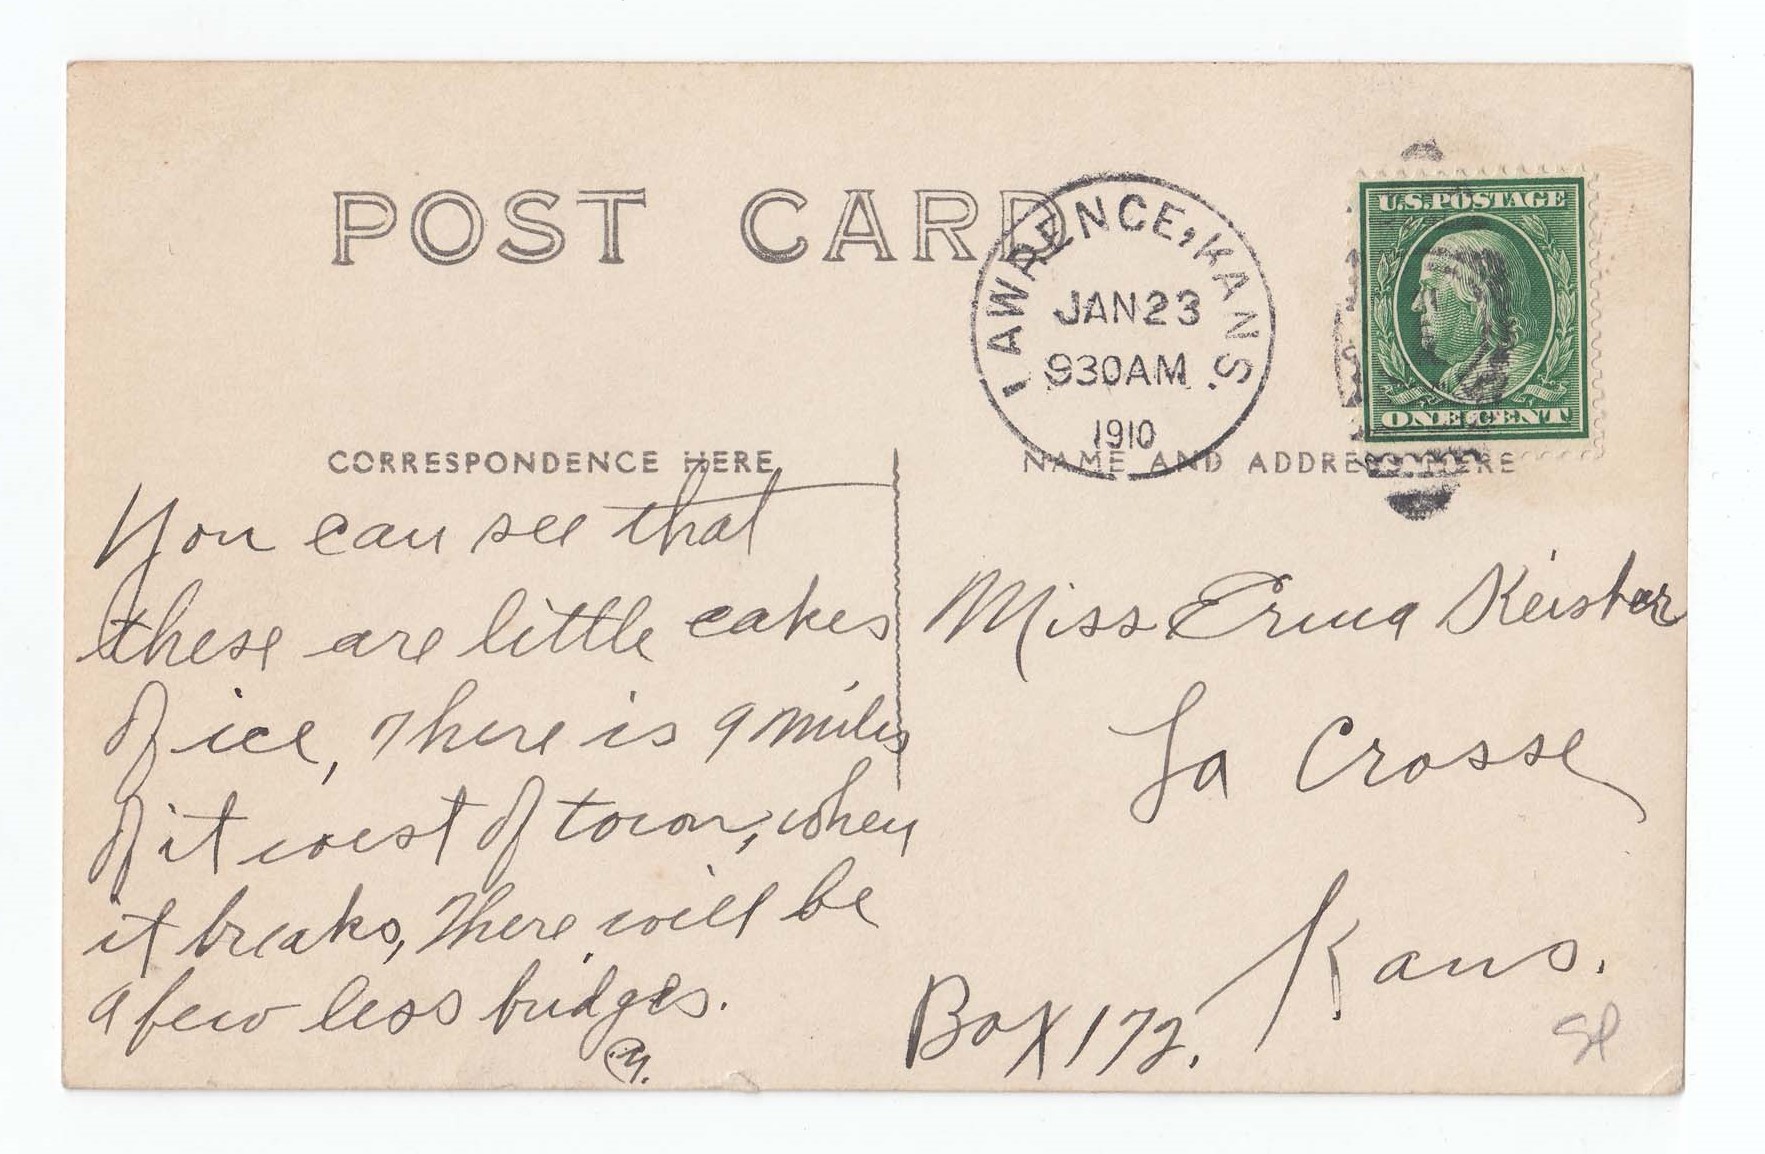 POST CARD
LAWRENCE, KANS.
JAN 23
930AM
1910
U.S. POSTAGE
ONE CENT
CORRESPONDENCE HERE
NAME AND ADDRESS HERE
You can see that
these are little cakes
of ice, There is 9 miles
of it west of town, when
it breaks, There will be
a few less bridges.
Miss Erma Keister
La Crosse
Kans.
Box 172.